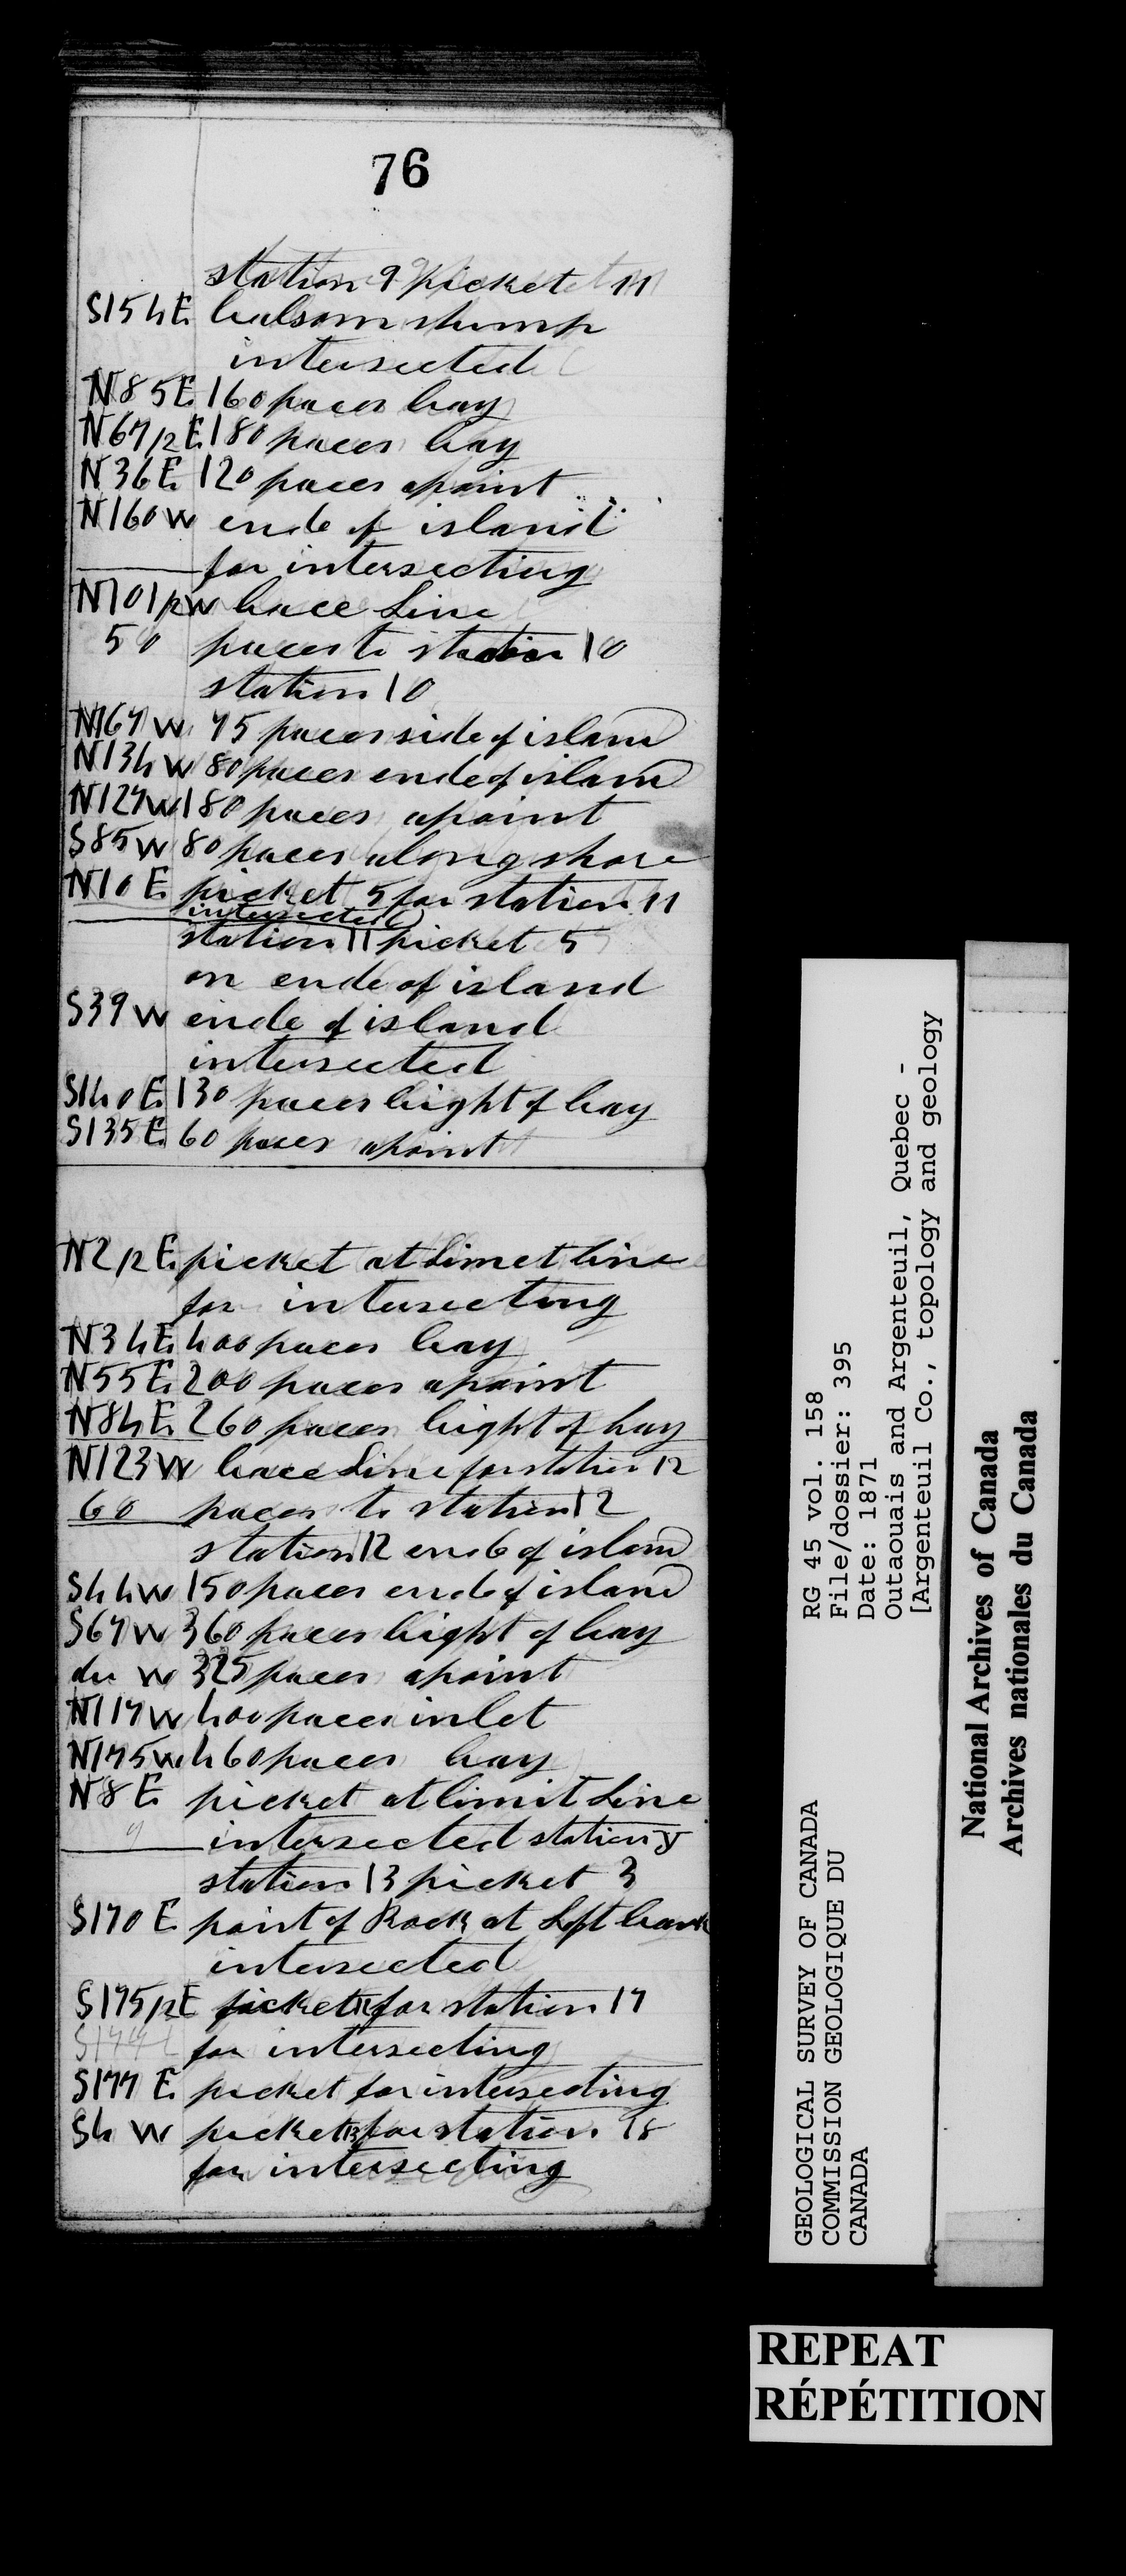 76
station 9 picket 11
S154E balsom stump
intersected
N85E 160 paces bay
N67/2E 180 paces bay
N36E 120 paces apoint
N160W ende of island
for intersecting
N101/2W bace Line
50 paces to station 10
station 10
N167W 75 paces side of island
N134W 80 paces ende of island
N127W 180 paces apoint
S85W 80 paces along shore
N10E picket 5 for station 11
intersected
station 11 picket 5
on ende of island
S39W ende of island
intersected
S140E 130 paces bight of bay
S135E 60 paces apoint
N2/2E picket at Limet line
for intersecting
N34E 400 paces bay
N55E 200 paces apoint
N84E 260 paces bight of bay
N123W bace Line for station 12
60 paces to station 12
station 12 ende of island
S44W 150 paces ende of island
S67W 360 paces bight of bay
du W 325 paces apoint
N117W 400 paces inlet
N175W 460 paces bay
N8E picket at limit Line
intersected station
station 13 picket 3
S170E point of Rock at Left bank
intersected
S175/2E picket for station 17
for intersecting
S177E picket for intersecting
S4W picket for station 18
for intersecting
RG 45 vol. 158
File/dossier: 395
Date: 1871
Outaouais and Argenteuil, Quebec -
[Argenteuil Co., topology and geology
GEOLOGICAL SURVEY OF CANADA
COMMISSION GEOLOGIQUE DU
CANADA
National Archives of Canada
Archives nationales du Canada
REPEAT
RÉPÉTITION